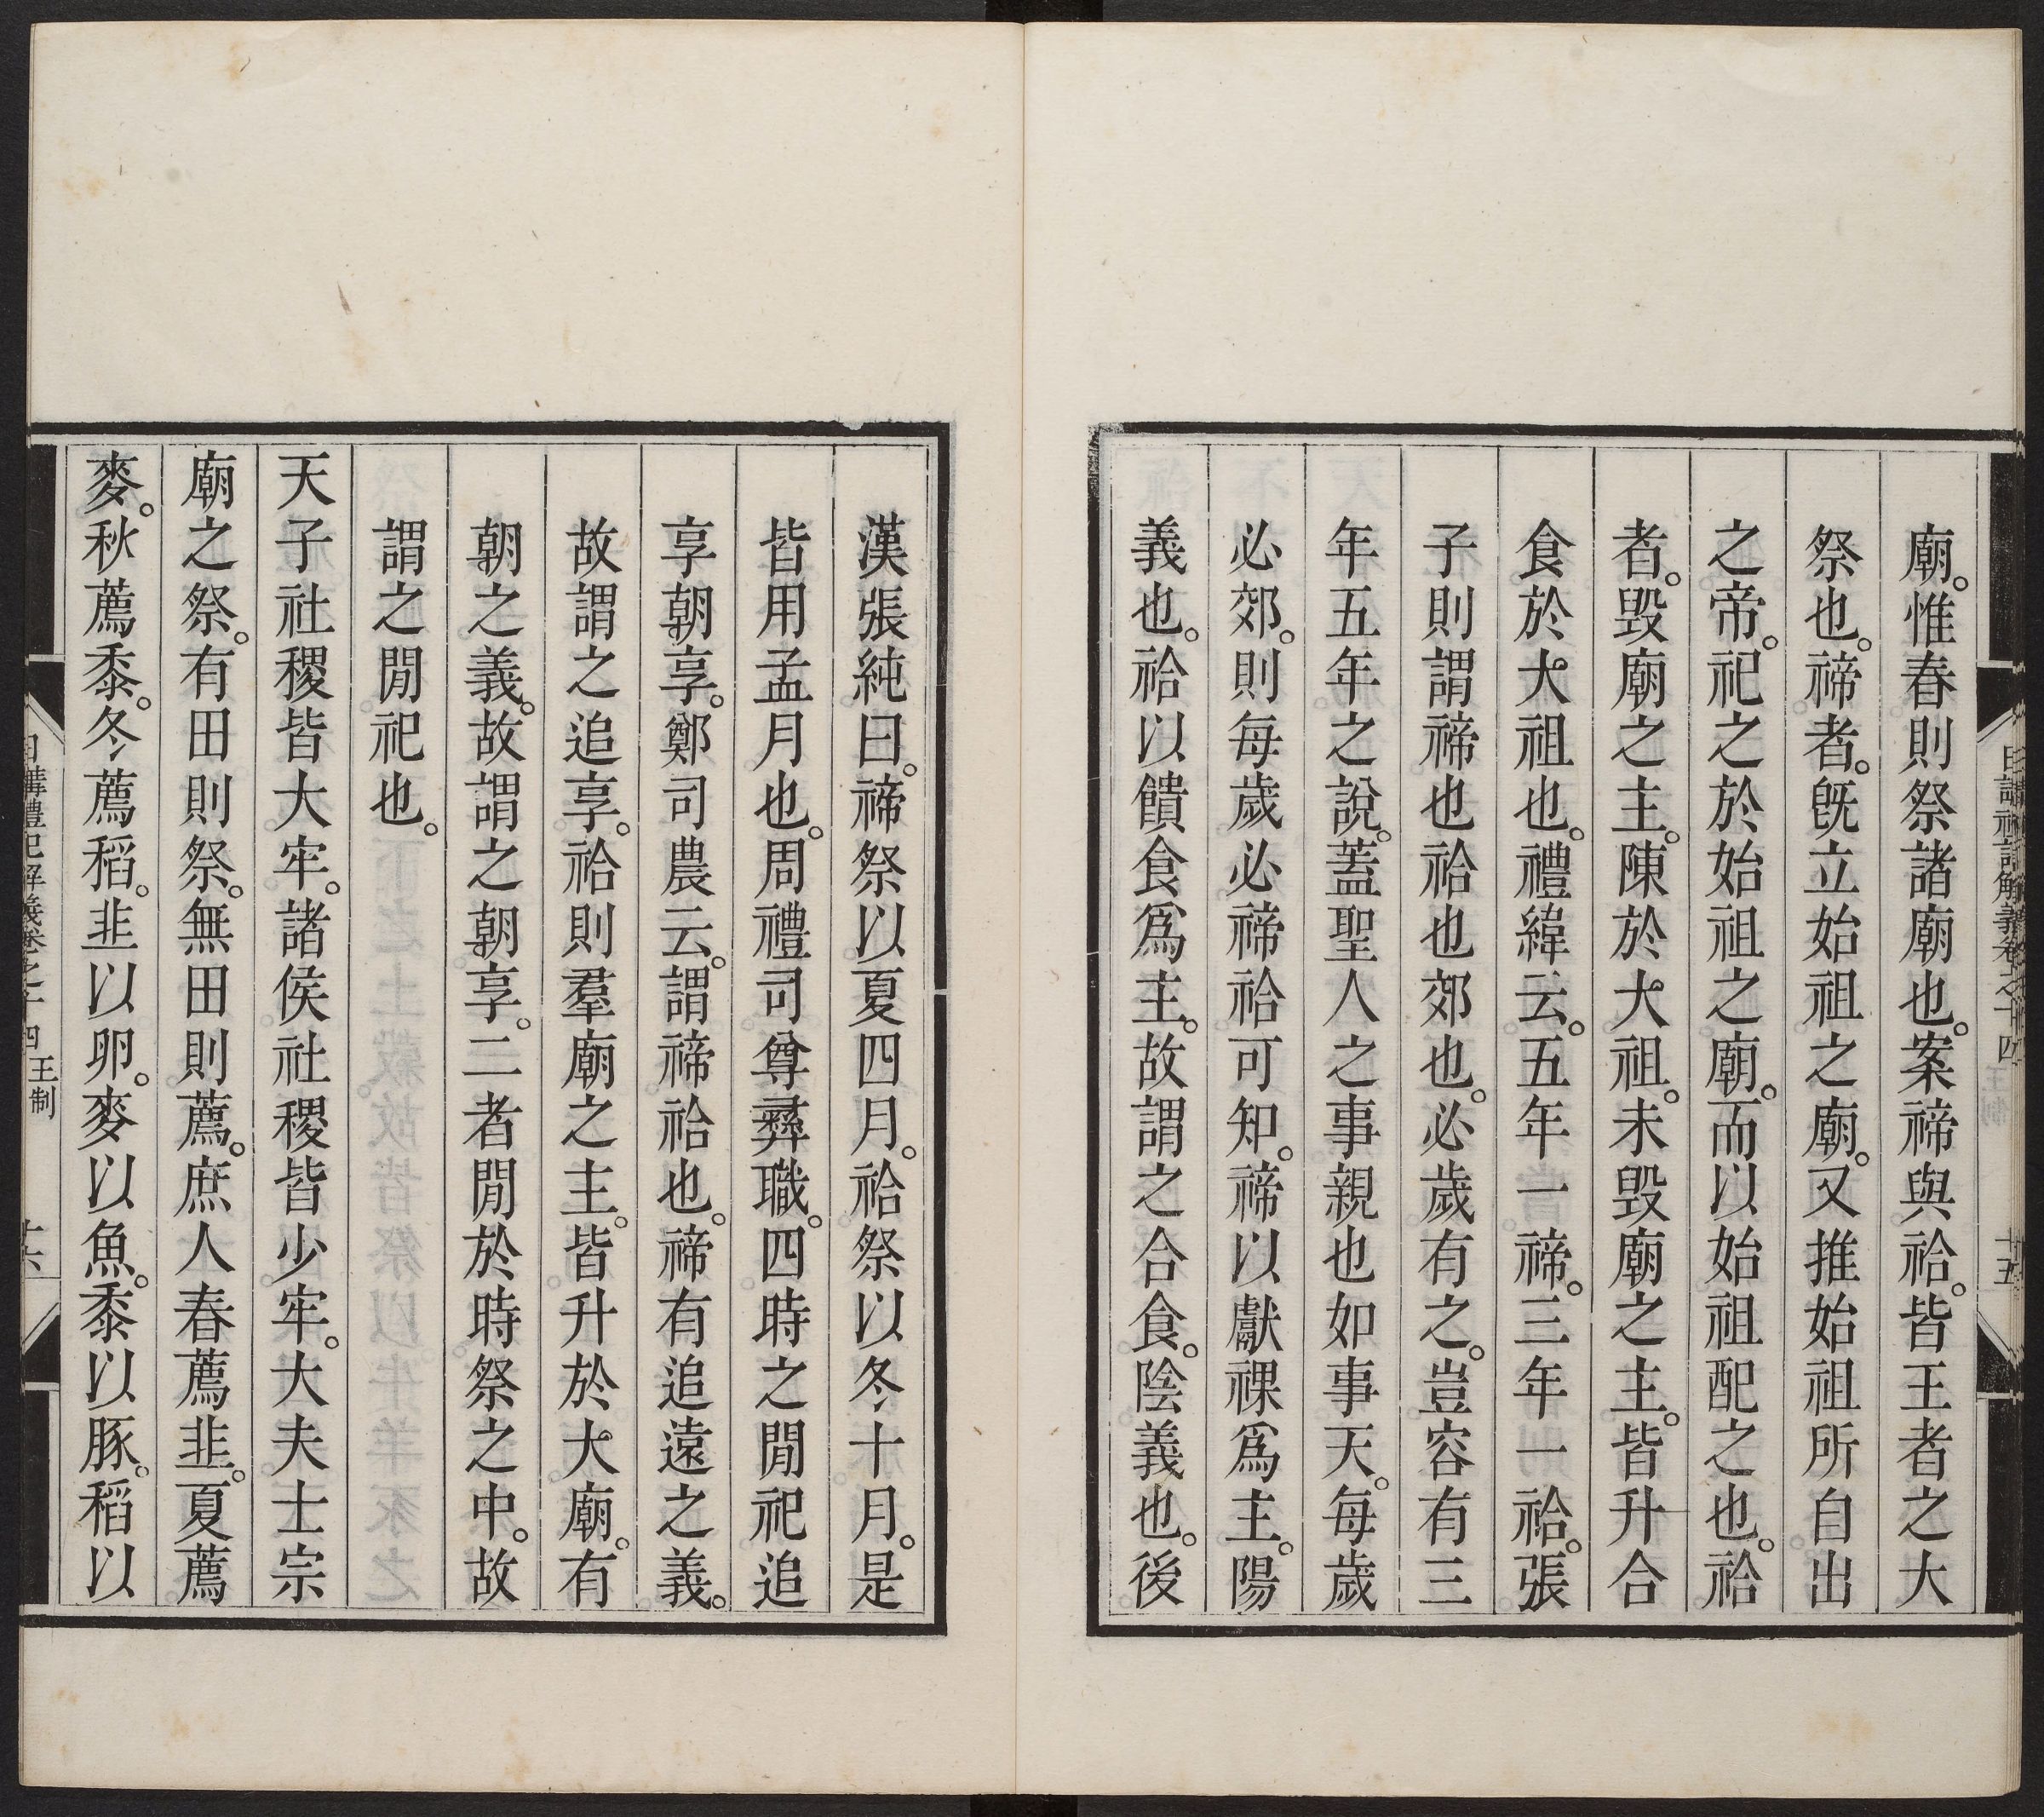 日講禮記解義卷之十四
王制
十五
廟。惟春則祭諸廟也。案禘與祫。皆王者之大
祭也。禘者。旣立始祖之廟。又推始祖所自出
之帝。祀之於始祖之廟。而以始祖配之也。祫
者。毀廟之主。陳於大祖。未毀廟之主。皆升合
食於大祖也。禮緯云。五年一禘。三年一祫。張
子則謂禘也祫也郊也。必歲有之。豈容有三
年五年之說。蓋聖人之事親也如事天。每歲
必郊。則每歲必禘祫可知。禘以獻祼爲主。陽
義也。祫以饋食爲主。故謂之合食。陰義也。後
漢張純曰。禘祭以夏四月。祫祭以冬十月。是
皆用孟月也。周禮司尊彝職。四時之閒祀追
享朝享。鄭司農云。謂禘祫也。禘有追遠之義。
故謂之追享。祫則羣廟之主。皆升於大廟。有
朝之義。故謂之朝享。二者閒於時祭之中。故
謂之閒祀也。
天子社稷皆大牢。諸侯社稷皆少牢。大夫士宗
廟之祭。有田則祭。無田則薦。庶人春薦韭。夏薦
麥。秋薦黍。冬薦稻。韭以卵。麥以魚。黍以豚。稻以
日講禮記解義卷之十四
王制
十六